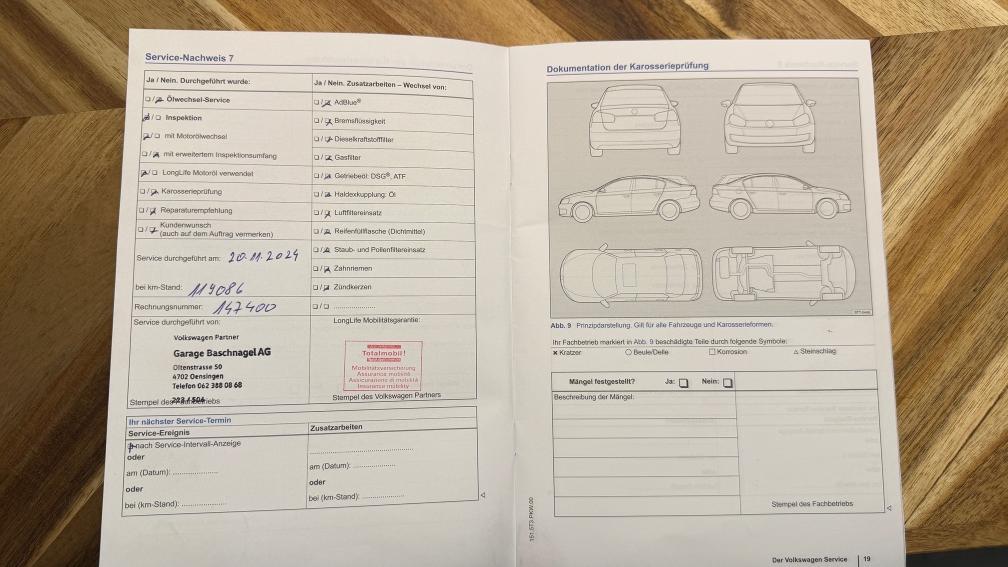 Service-Nachweis 7
Ja / Nein. Durchgeführt wurde:
Ölwechsel-Service
Inspektion
mit Motorölwechsel
mit erweitertem Inspektionsumfang
LongLife Motoröl verwendet
Karosserieprüfung
Reparaturempfehlung
Kundenwunsch
(auch auf dem Auftrag vermerken)
Service durchgeführt am: 20.11.2024
bei km-Stand: 119086
Rechnungsnummer: 147400
Service durchgeführt von:
Volkswagen Partner
Garage Baschnagel AG
Oltenstrasse 50
4702 Oensingen
Telefon 062 388 08 68
Stempel des
Ja / Nein. Zusatzarbeiten – Wechsel von:
AdBlue®
Bremsflüssigkeit
Dieselkraftstofffilter
Gasfilter
Getriebeöl: DSG®, ATF
Haldexkupplung: Öl
Luftfiltereinsatz
Reifenfüllflasche (Dichtmittel)
Staub- und Pollenfiltereinsatz
Zahnriemen
Zündkerzen
LongLife Mobilitätsgarantie:
Totalmobil!
Mobilitätsversicherung
Assurance mobilité
Assicurazione di mobilità
Insurance mobility
Stempel des Volkswagen Partners
Ihr nächster Service-Termin
Service-Ereignis
nach Service-Intervall-Anzeige
oder
am (Datum): ....................
oder
bei (km-Stand): ....................
Zusatzarbeiten
am (Datum): ....................
oder
bei (km-Stand): ....................
Dokumentation der Karosserieprüfung
Abb. 9 Prinzipdarstellung. Gilt für alle Fahrzeuge und Karosserieformen.
Ihr Fachbetrieb markiert in Abb. 9 beschädigte Teile durch folgende Symbole:
Kratzer Beule/Delle Korrosion Steinschlag
Mängel festgestellt? Ja: Nein:
Beschreibung der Mängel:
Stempel des Fachbetriebs
151.5T3.PKW.00
Der Volkswagen Service 19